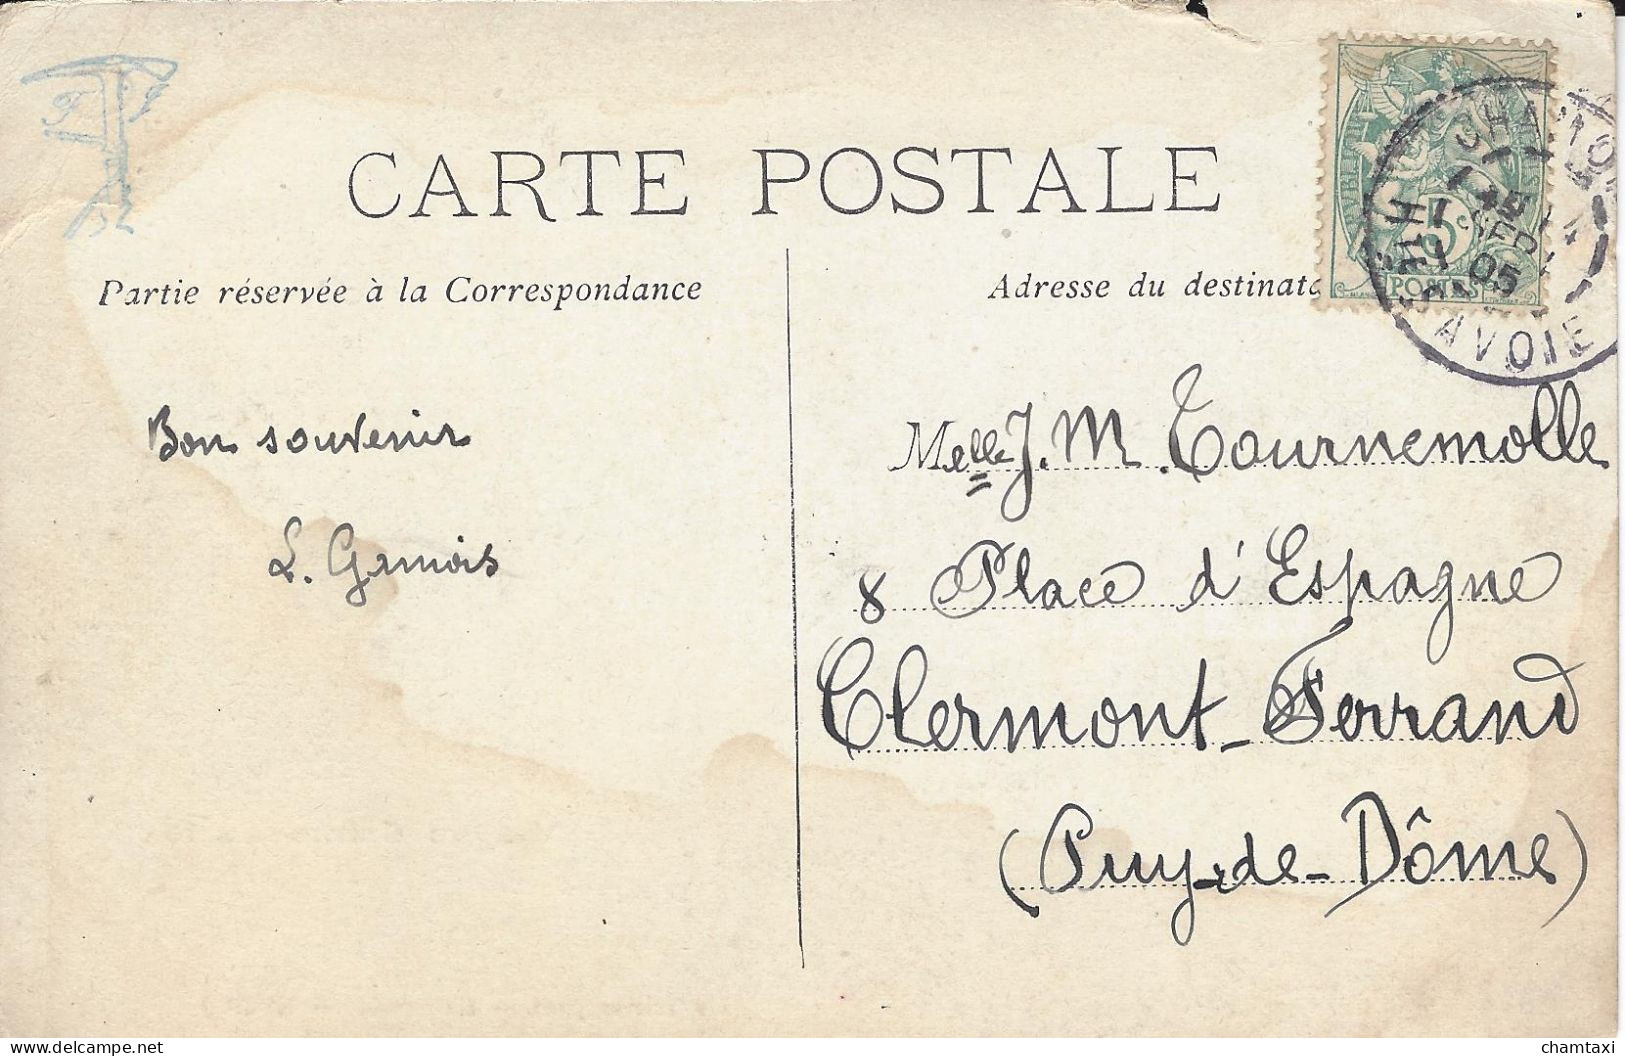 CARTE POSTALE
Partie réservée à la Correspondance
Adresse du destinat
5c
POSTES
SEPT
05
SAVOIE
Bon souvenir
Melle J. M. Tournemolle
8 Place d'Espagne
Clermont-Ferrand
(Puy-de-Dôme)
delcampe.net
chamtaxi